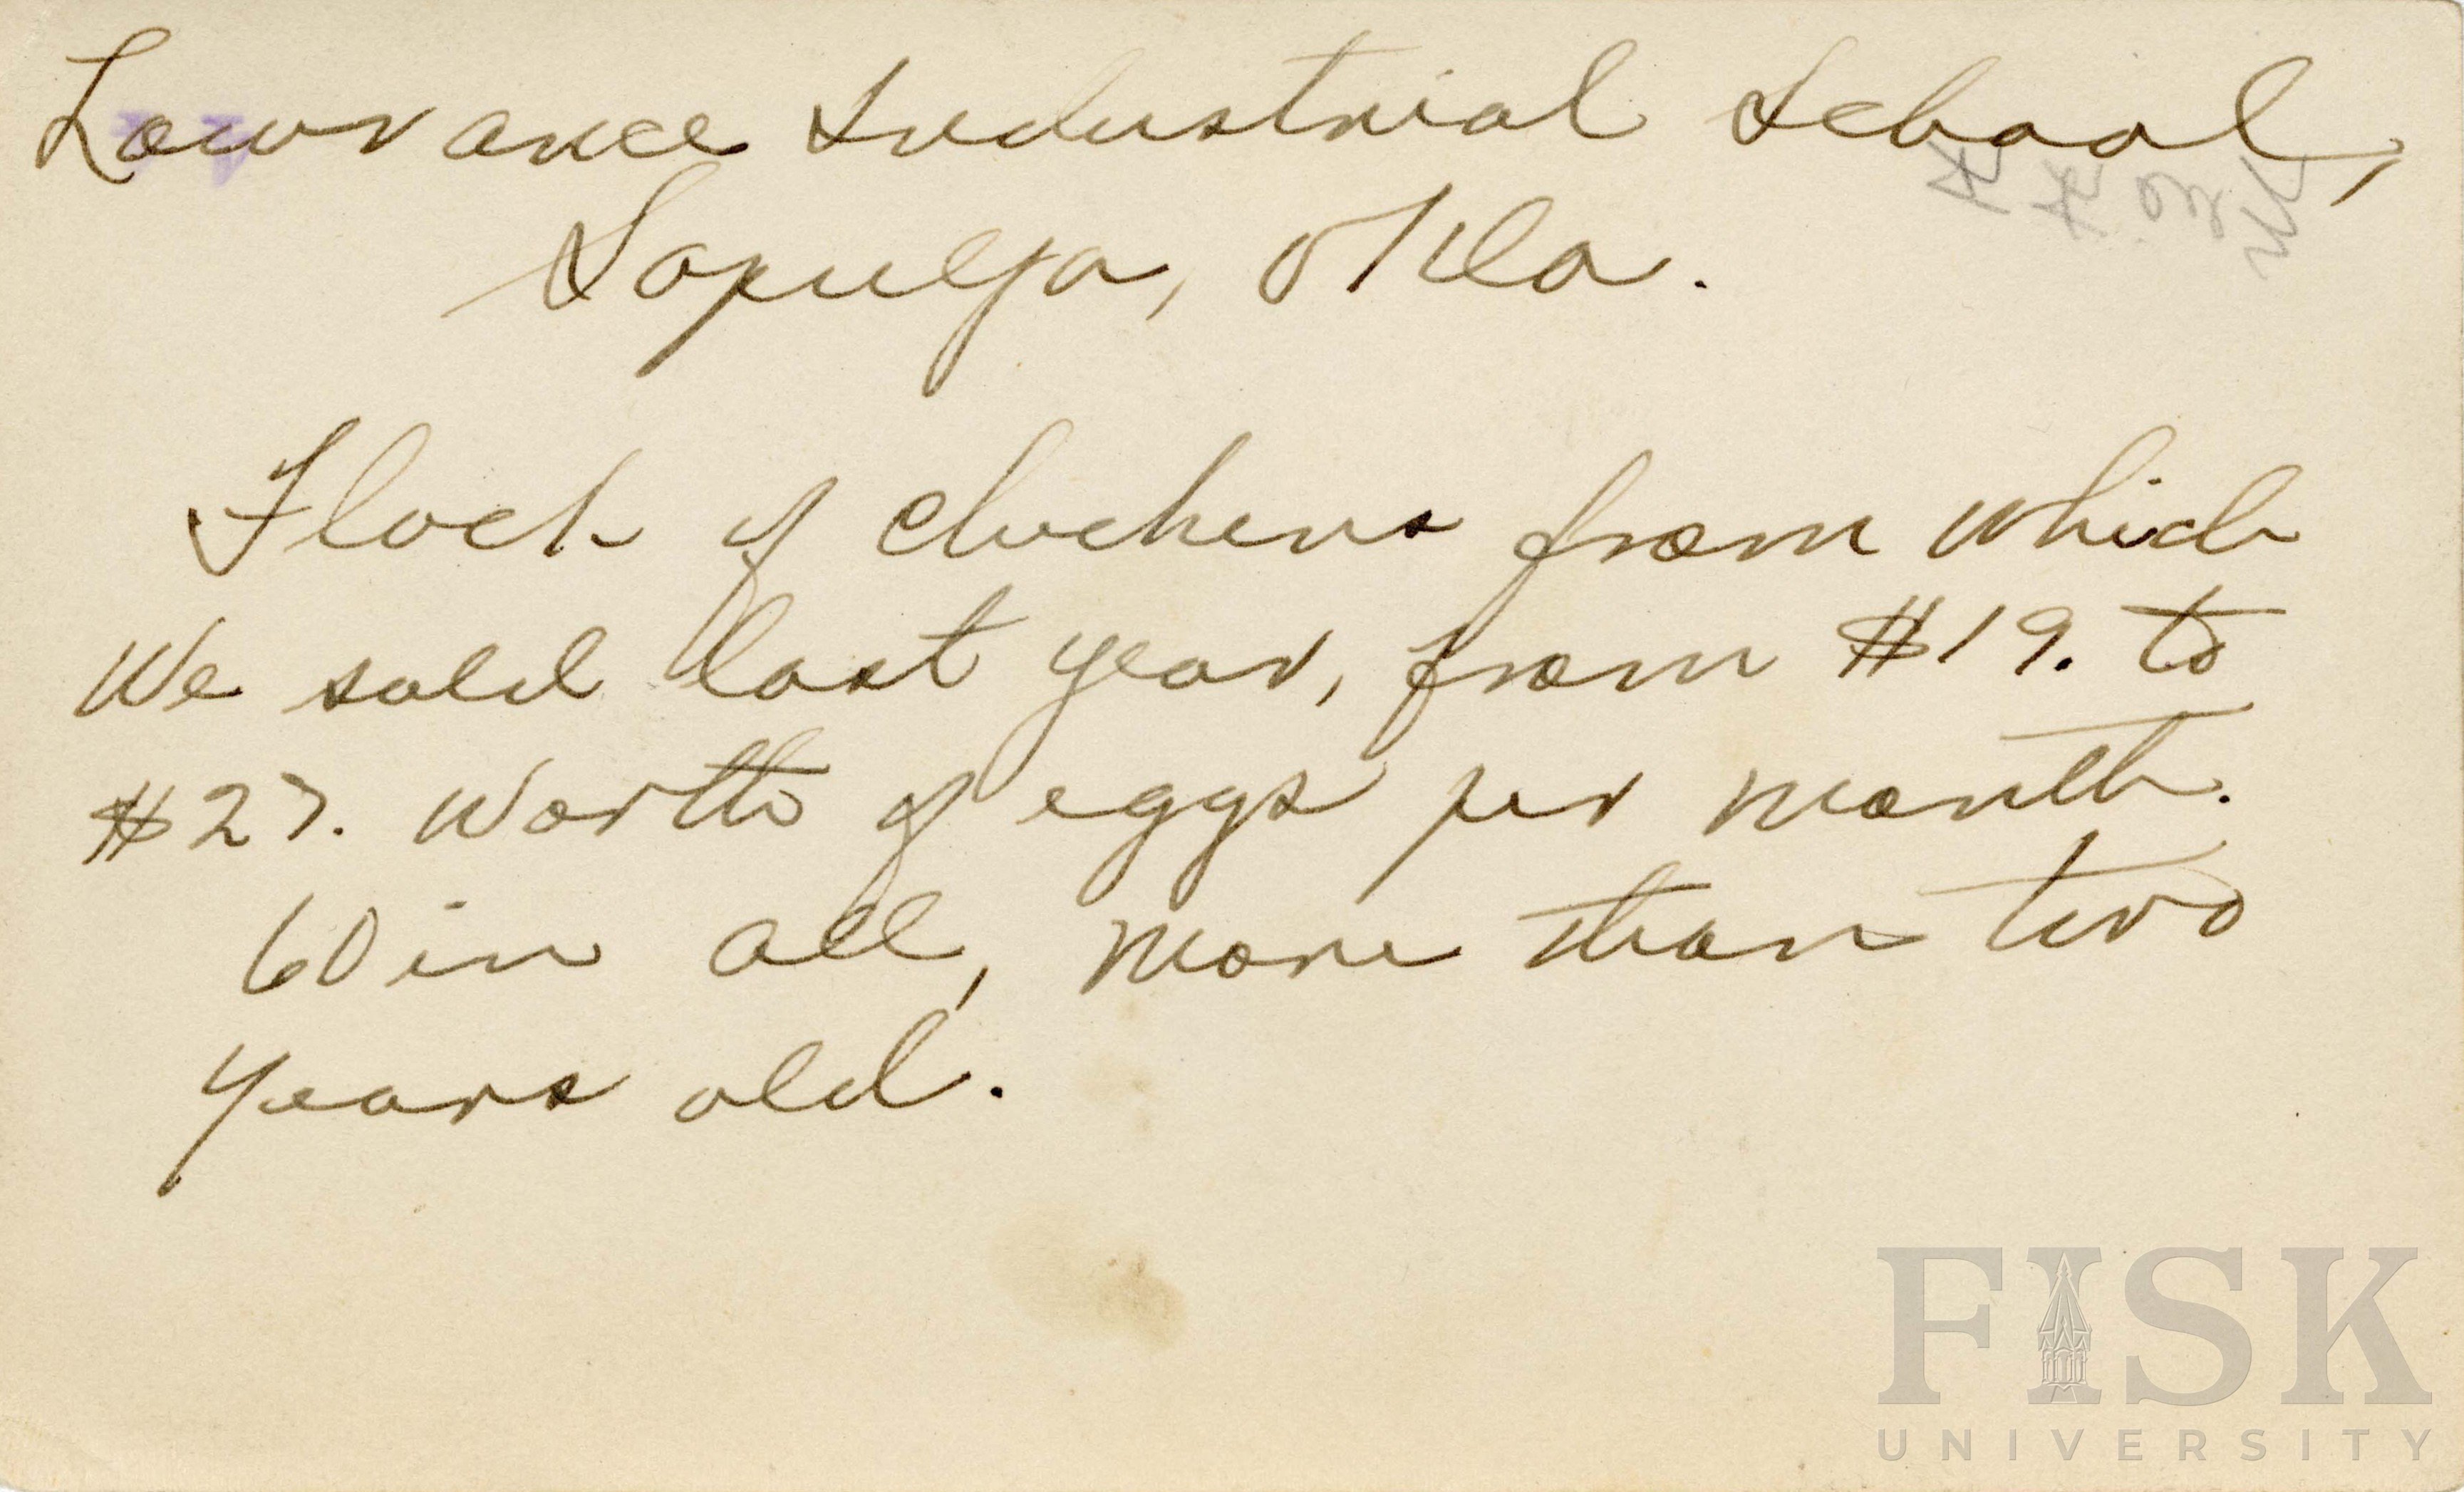 Lowrance Industrial School,
Sapulpa, Okla.
Flock of chickens from which
We sold last year, from $19. to
$27. worth of eggs per month.
60 in all, more than two
years old.
FISK
UNIVERSITY